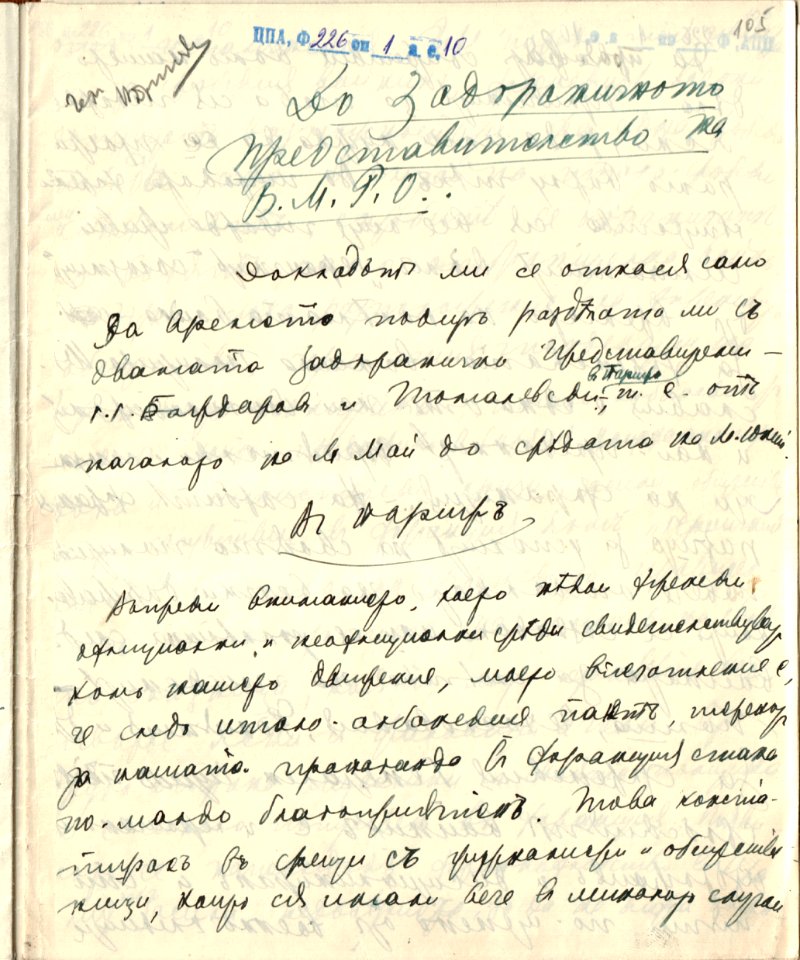 105
ЦПА, Ф 226 оп 1 а. е. 10
До Задграничното
представителство на
В. М. Р. О..
Докладътъ ми се отнася само
за времето подиръ раздѣлата ми съ
двамата Задгранични Представители –
г.г. Баждаров и Томалевски, въ Парижъ
т. е. отъ
началото на м. Май до срѣдата на м. Юний.
Въ Парижъ
Въпрѣки вниманието, което нѣкои френски
официални и неофициални срѣди свидетелствуватъ
къмъ нашето движение, моето впечатление е,
че следъ итало-албанския пактъ, теренът
за нашата пропаганда въ Франция стана
по-малко благоприятенъ. Това конста-
тирахъ въ срещи съ журналисти и обществе
ници, които са имали вече въ миналото случаи